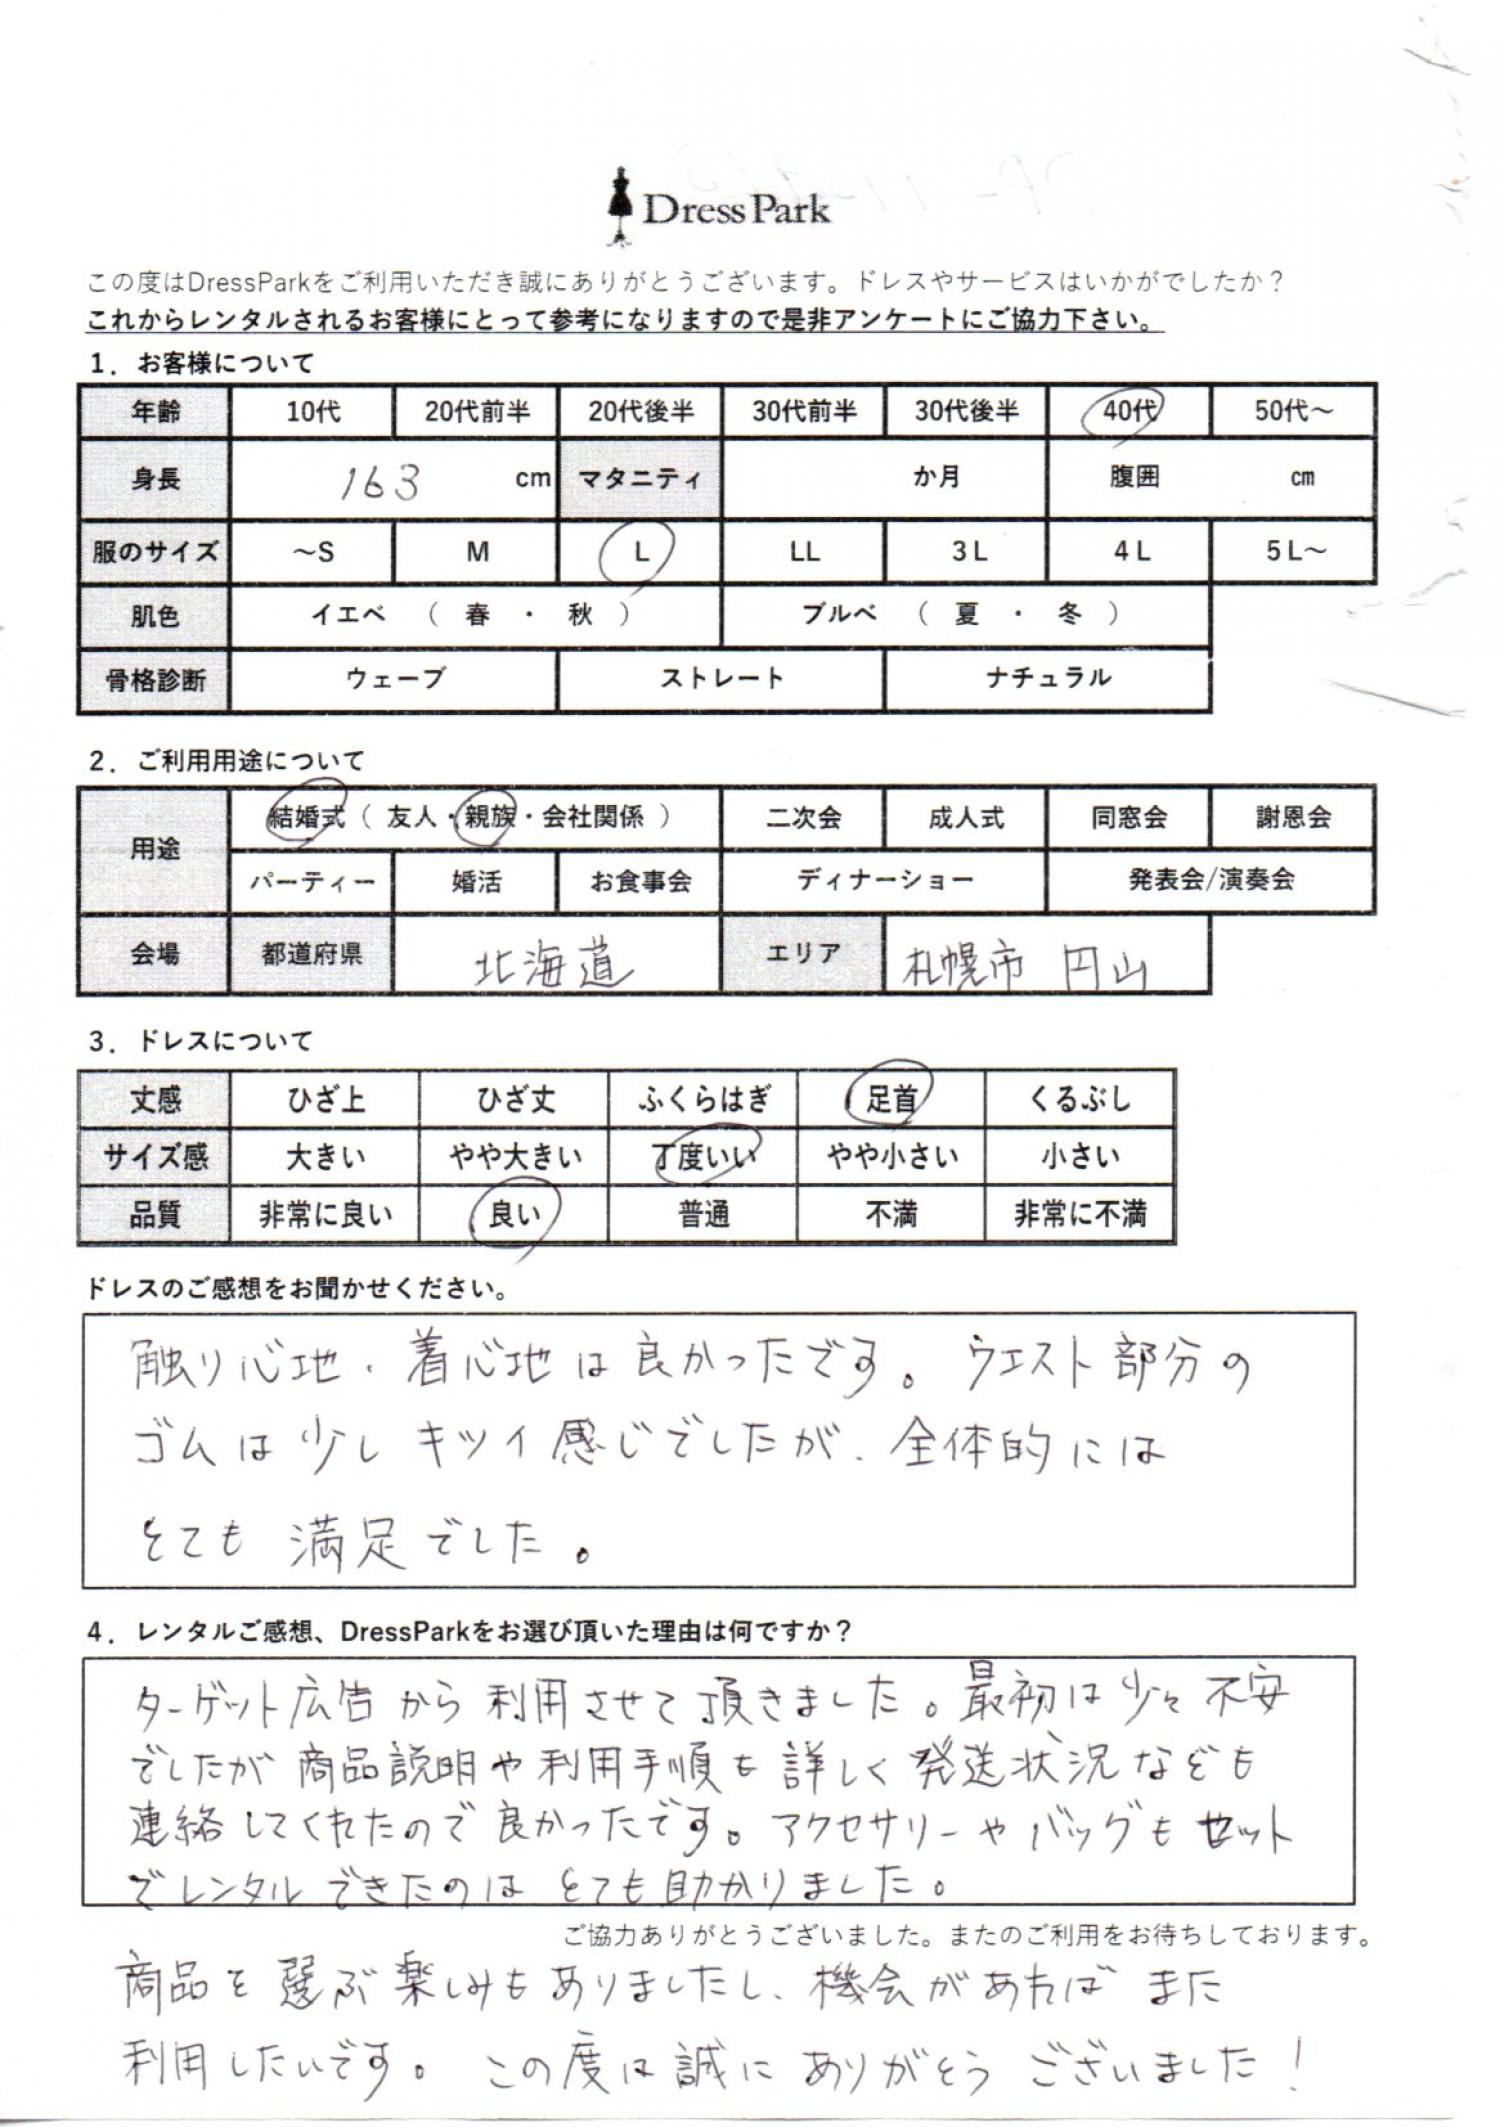 Dress Park
この度はDressParkをご利用いただき誠にありがとうございます。ドレスやサービスはいかがでしたか？
これからレンタルされるお客様にとって参考になりますので是非アンケートにご協力下さい。
1．お客様について
年齢 10代 20代前半 20代後半 30代前半 30代後半 40代 50代～
身長 163 cm マタニティ か月 腹囲 cm
服のサイズ ～S M L LL 3L 4L 5L～
肌色 イエベ （ 春 ・ 秋 ） ブルベ （ 夏 ・ 冬 ）
骨格診断 ウェーブ ストレート ナチュラル
2．ご利用用途について
用途 結婚式（ 友人・親族・会社関係 ） 二次会 成人式 同窓会 謝恩会
パーティー 婚活 お食事会 ディナーショー 発表会/演奏会
会場 都道府県 北海道 エリア 札幌市 円山
3．ドレスについて
丈感 ひざ上 ひざ丈 ふくらはぎ 足首 くるぶし
サイズ感 大きい やや大きい 丁度いい やや小さい 小さい
品質 非常に良い 良い 普通 不満 非常に不満
ドレスのご感想をお聞かせください。
触り心地・着心地は良かったです。ウエスト部分の
ゴムは少しキツイ感じでしたが、全体的には
とても満足でした。
4．レンタルご感想、DressParkをお選び頂いた理由は何ですか？
ターゲット広告から利用させて頂きました。最初は少々不安
でしたが商品説明や利用手順も詳しく発送状況なども
連絡してくれたので良かったです。アクセサリーやバッグもセット
でレンタルできたのはとても助かりました。
ご協力ありがとうございました。またのご利用をお待ちしております。
商品を選ぶ楽しみもありましたし、機会があればまた
利用したいです。この度は誠にありがとうございました！